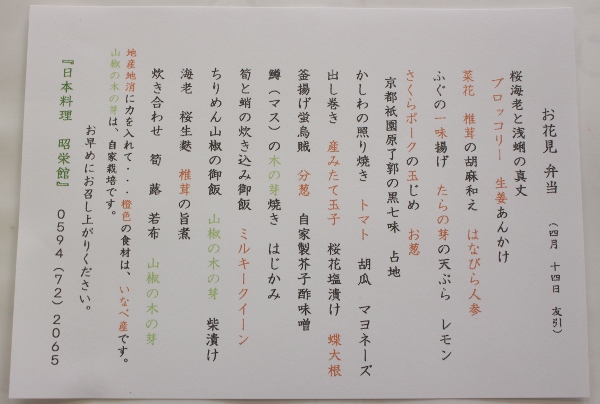 お花見 弁当 (四月 十四日 友引)
桜海老と浅蜊の真丈
ブロッコリー 生姜あんかけ
菜花 椎茸の胡麻和え はなびら人参
ふぐの一味揚げ たらの芽の天ぷら レモン
さくらポークの玉じめ お葱
京都祇園原了郭の黒七味 占地
かしわの照り焼き トマト 胡瓜 マヨネーズ
出し巻き 産みたて玉子 桜花塩漬け 蝶大根
釜揚げ蛍烏賊 分葱 自家製芥子酢味噌
鱒(マス)の木の芽焼き はじかみ
筍と蛸の炊き込み御飯 ミルキークイーン
ちりめん山椒の御飯 山椒の木の芽 柴漬け
海老 桜生麩 椎茸の旨煮
炊き合わせ 筍 蕗 若布 山椒の木の芽
地産地消に力を入れて・・・橙色の食材は、いなべ産です。
山椒の木の芽は、自家栽培です。
お早めにお召し上がりください。
『日本料理 昭栄館』 0594(72)2065